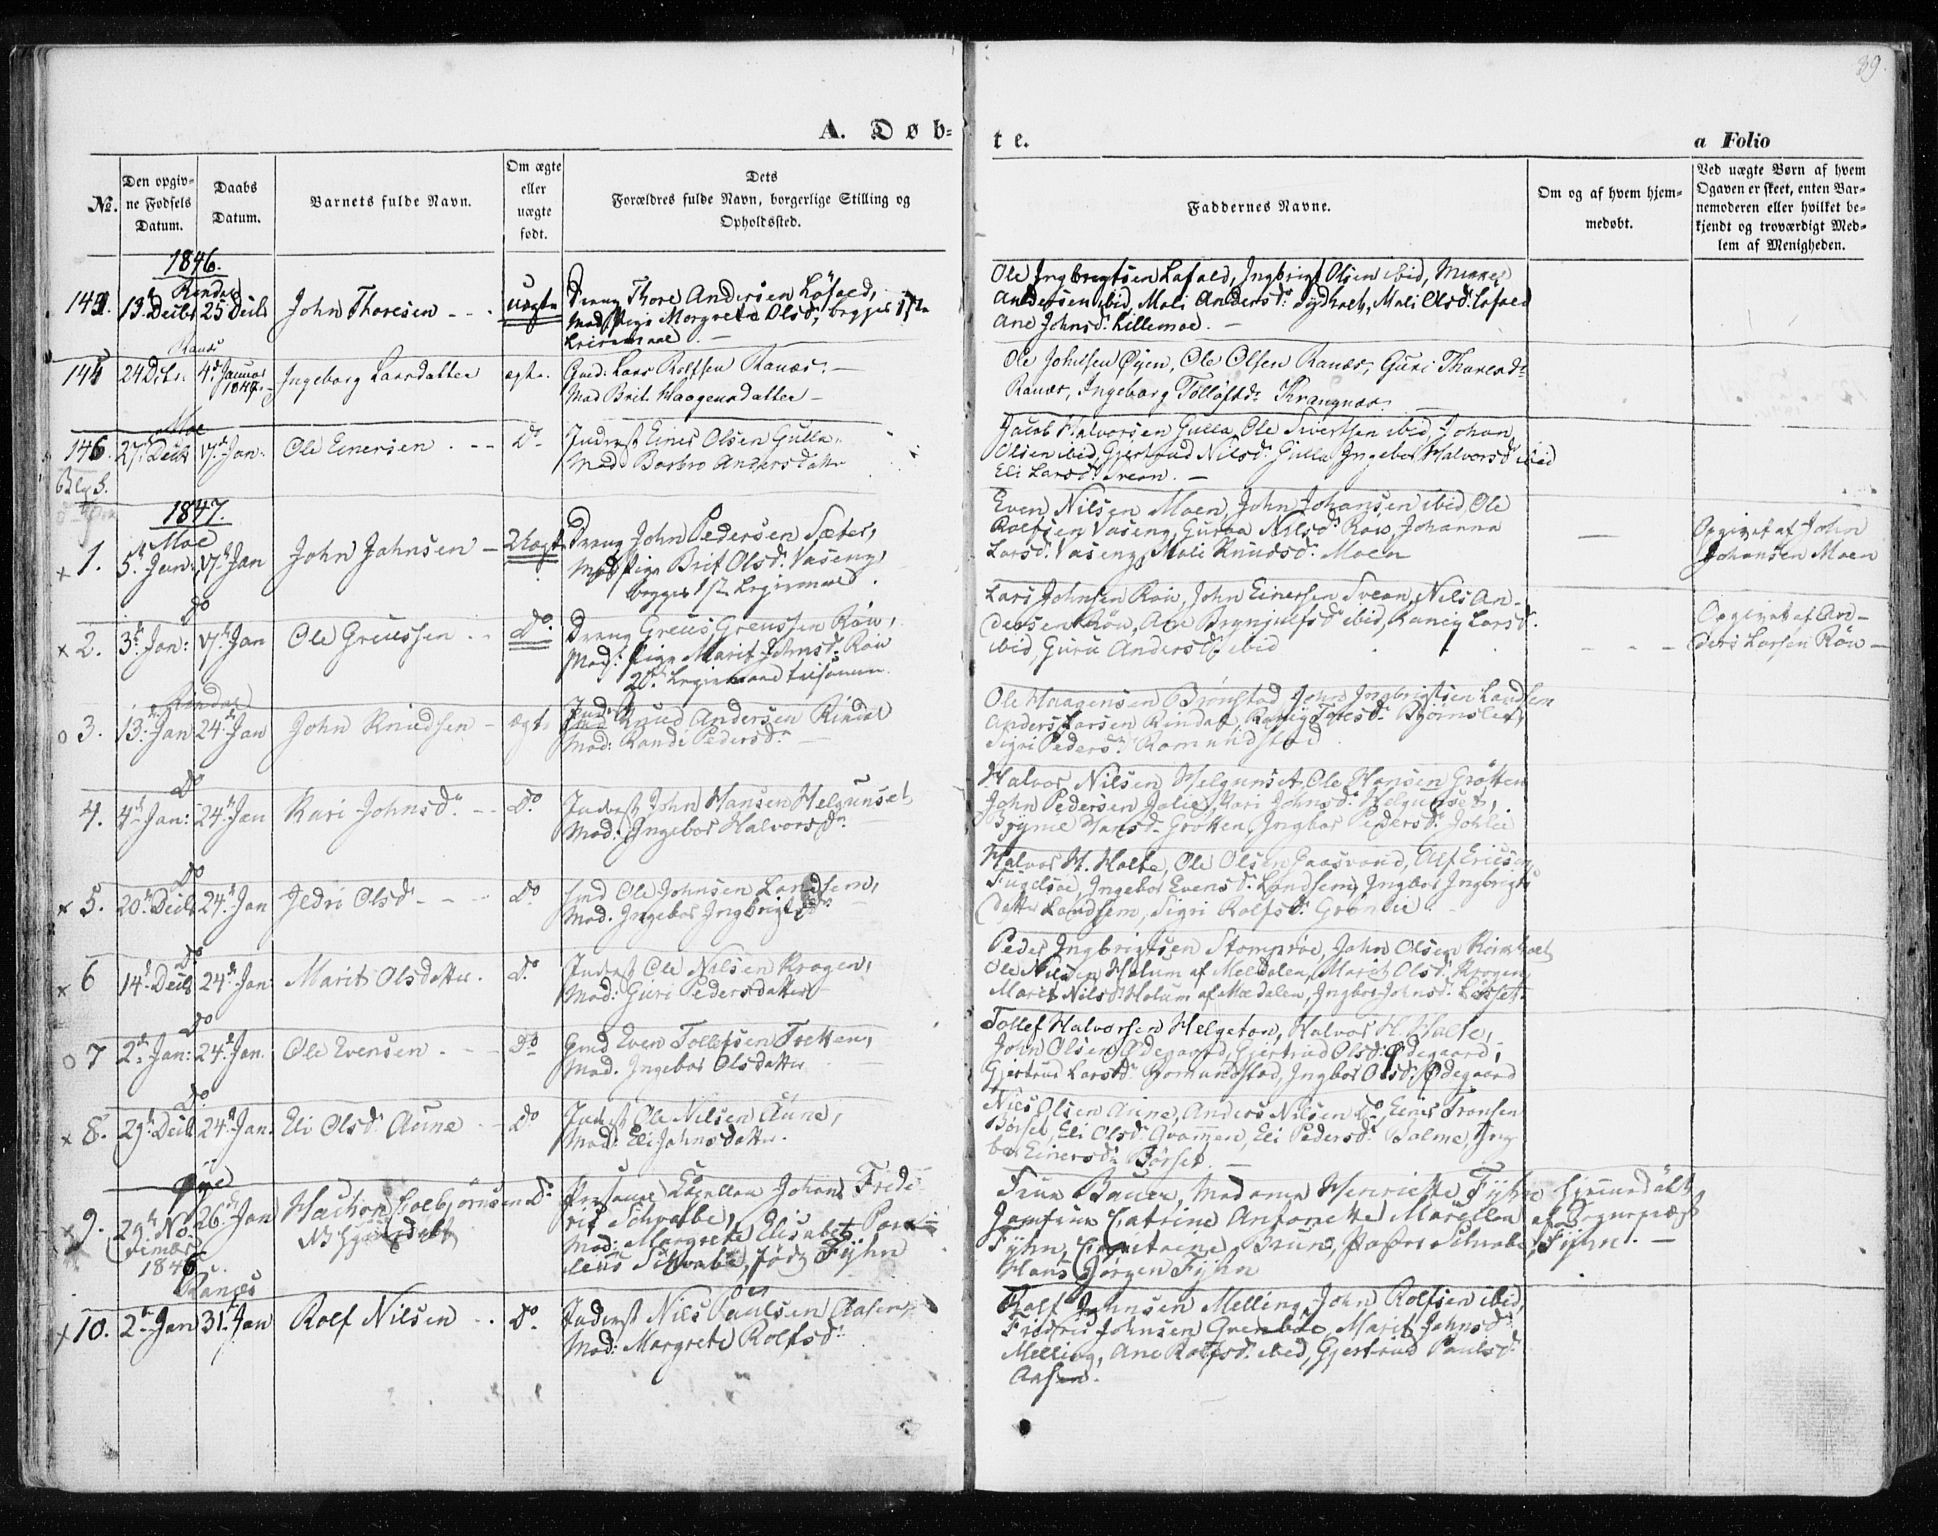 89.
A. Døb-
te.
a Folio
No.
Den opgiv-
ne Fødsels
Datum.
Daabs
Datum.
Barnets fulde Navn.
Om ægte
eller
uægte
født.
Dets
Forældres fulde Navn, borgerlige Stilling og
Opholdssted.
Faddernes Navne.
Om og af hvem hjem-
medøbt.
Ved uægte Børn af hvem
Ogaven er skeet, enten Bar-
nemoderen eller hvilket be-
kjendt og troværdigt Med-
lem af Menigheden.
1846.
Rindal
13. Decbr 25 Decbr John Thoresen uægte Dreng Thore Andersen Løfald,
Mod Pige Margrete Olsd, begges 1ste
Leiermaal
Ole Ingbrigtsen Løfald, Ingbrigt Olsen ibid,
Andersen ibid, Mali Andersd, Mali Olsd. Løfald
Ane Johnsd. Lillemoe.
Ranæs
145 24 Dcbr. 4d Januar Ingeborg Larsdatter ægte. Gmd: Lars Rolfsen Ranæs.
1847.
Mod Brit Haagensdatter
Ole Johnsen Øyen, Ole Olsen Ranæs, Guri Tharesdr
Ranæs, Ingeborg Tollofsdr Krangnæs.
Moe
146. 27. Decbr 17d Jan. Ole Einersen Do Inderst Einer Olsen Gulla,
Mod Barbro Andersdatter
Jacob Halvorsen Gulla, Ole Sivertsen ibid, Johan
Olsen ibid, Gjertrud Nilsd Gulla, Ingebor Halvorsd ibid
Eli Larsd. Svean.
1847.
Moe
x 1. 5. Jan: 17d Jan John Johnsen Uægte Dreng John Pedersen Sæter,
Mod Pige Brit Olsd. Vaseng
begges 1ste Legiermaal.
Even Nilsen Moen, John Johansen ibid, Ole
Rolfsen Vaseng, Guroa Nilsd Røw, Johanna
Larsd. Vaseng, Mali Knudsd. Moen
Opgivet af John
Johansen Moen
do
x 2. 3d Jan: 17d Jan Ole Greussen Do. Dreng Greus Greussen Røw,
Mod: Pige Marit Johnsd. Røw
2det Legiermaal tilsammen.
Lars Johnsen Røw, John Einersen Svean, Nils An-
dersen Røw, Ane Brynjulfsd ibid, Ranei Larsd.
ibid, Guru Andersd ibid
Opgivet af An-
ders Larsen Røw
Rindal
o 3. 13. Jan 24. Jan John Knudsen ægte Inderst Knud Andersen Rindal
Mod: Randi Pedersdr
Ole Haagensen Brønstad, John Ingbrigtsen Landsem
Anders Larsen Rindal, Ranig Toresd Bjørnslet,
Sigri Pedersd Romundstad
Do
4. 4d Jan: 24d Jan Kari Johnsd. Do Inderst John Hansen Helgunset
Mod: Ingebor Halvorsd
Halvor Nilsen Helgunset, Ole Hansen Grøtten
John Pedersen Jolie, Kari Johnsd. Helgunset,
Hansd Grøtten, Ingbor Pedersd. Johlie
Do
x 5. 20d Decbr 24. Jan Jedri Olsd Do Gmd Ole Johnsen Landsem,
Mod. Ingebor Ingbrigtsd
Halvor H. Holte, Ole Olsen Gaasvand, Alf Ericsen
Fugelsøe, Ingebor Evensd. Landsem, Ingbor Ingbrigts
datter Landsem, Sigri Rolfsd. Grønlie
Do
x 6 14d Decbr 24d Jan Marit Olsdatter. Do Inderst Ole Nilsen Krogen,
Mod: Guri Pedersdatter
Peder Ingbrigtsen Stomprøe, John Olsen
Ole Nilsen Holum af Meldalen, Marit Olsd Krogen,
Marit Nilsd Holum af Meldalen, Ingbor Johnsd.
Do
o 7 2d Jan: 24d Jan. Ole Evensen. Do Gmd Even Tollefsen Tretten,
Mod. Ingebor Olsdatter
Tollef Halvorsen Helgeton, Halvor H. Holte,
John Olsen Ødegaard, Gjertrud Olsd. Ødegaard,
Gjertrud Larsd. Romundstad, Ingbor Olsd. Ødegaard
Do
x 8. 29d Decbr 24d Jan. Eli Olsd. Aune Do Inderst Ole Nilsen Aune,
Mod: Eli Johnsdatter.
Nils Olsen Aune, Anders Nilsen Do, Einer Tronsen
Børset, Eli Olsd. Qvammen, Eli Pedersd. Bolme, Ing
bor Einersd. Børset
Øye
x 9. 29d No 26d Jan Hachon Do Personel Capellan Johan Fride
vember
1846
rik Schwabe,
Mod: Margrete Elisabet
Schwabe, født Fyhn
Fru Bauer, Madame Henriette Fyhn
Jomfrue Catrine Antonette Marcellia
Fyhn, Brun, Pastor Schwabe,
Hans Jørgen Fyhn
hjemmedøbt
af Sognepræst
Fyhn.
Ranæs
x 10. 2d Jan 31d Jan Rolf Nilsen Do. Inderst Nils Paulsen Aasen
Mod: Margrete Rolfsd.
Rolf Johnsen Melling, John Rolfsen ibid,
Johnsen Qvenbøe, Marit Johnsd
Melling, Ane Rolfsd. ibid, Gjertrud Paulsd
Aasen.